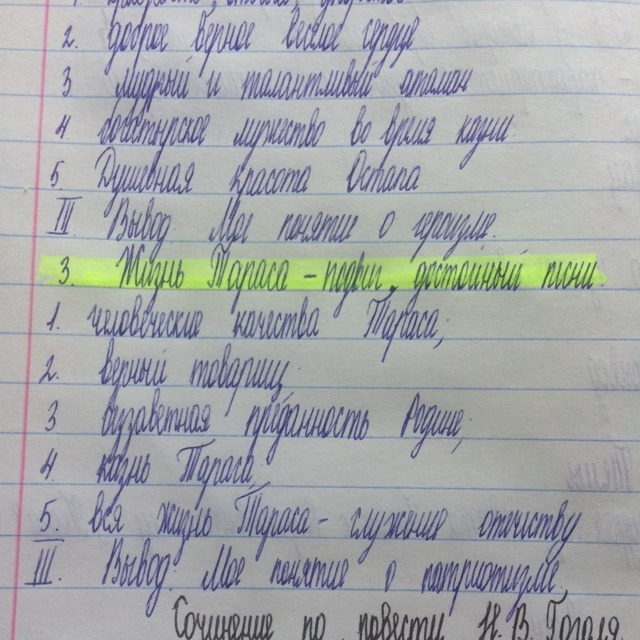 2. доброе верное веселое сердце
3 мудрый и талантливый атаман
4 богатырское мужество во время казни.
5. Душевная красота Остапа
III Вывод. Мое понятие о героизме.
3. Жизнь Тараса – подвиг, достойный песни
1. человеческие качества Тараса;
2. верный товарищ
3 беззаветная преданность Родине;
4. казнь Тараса;
5. вся жизнь Тараса – служение отечеству
III. Вывод: Мое понятие о патриотизме.
Сочинение по повести Н. В. Гоголя